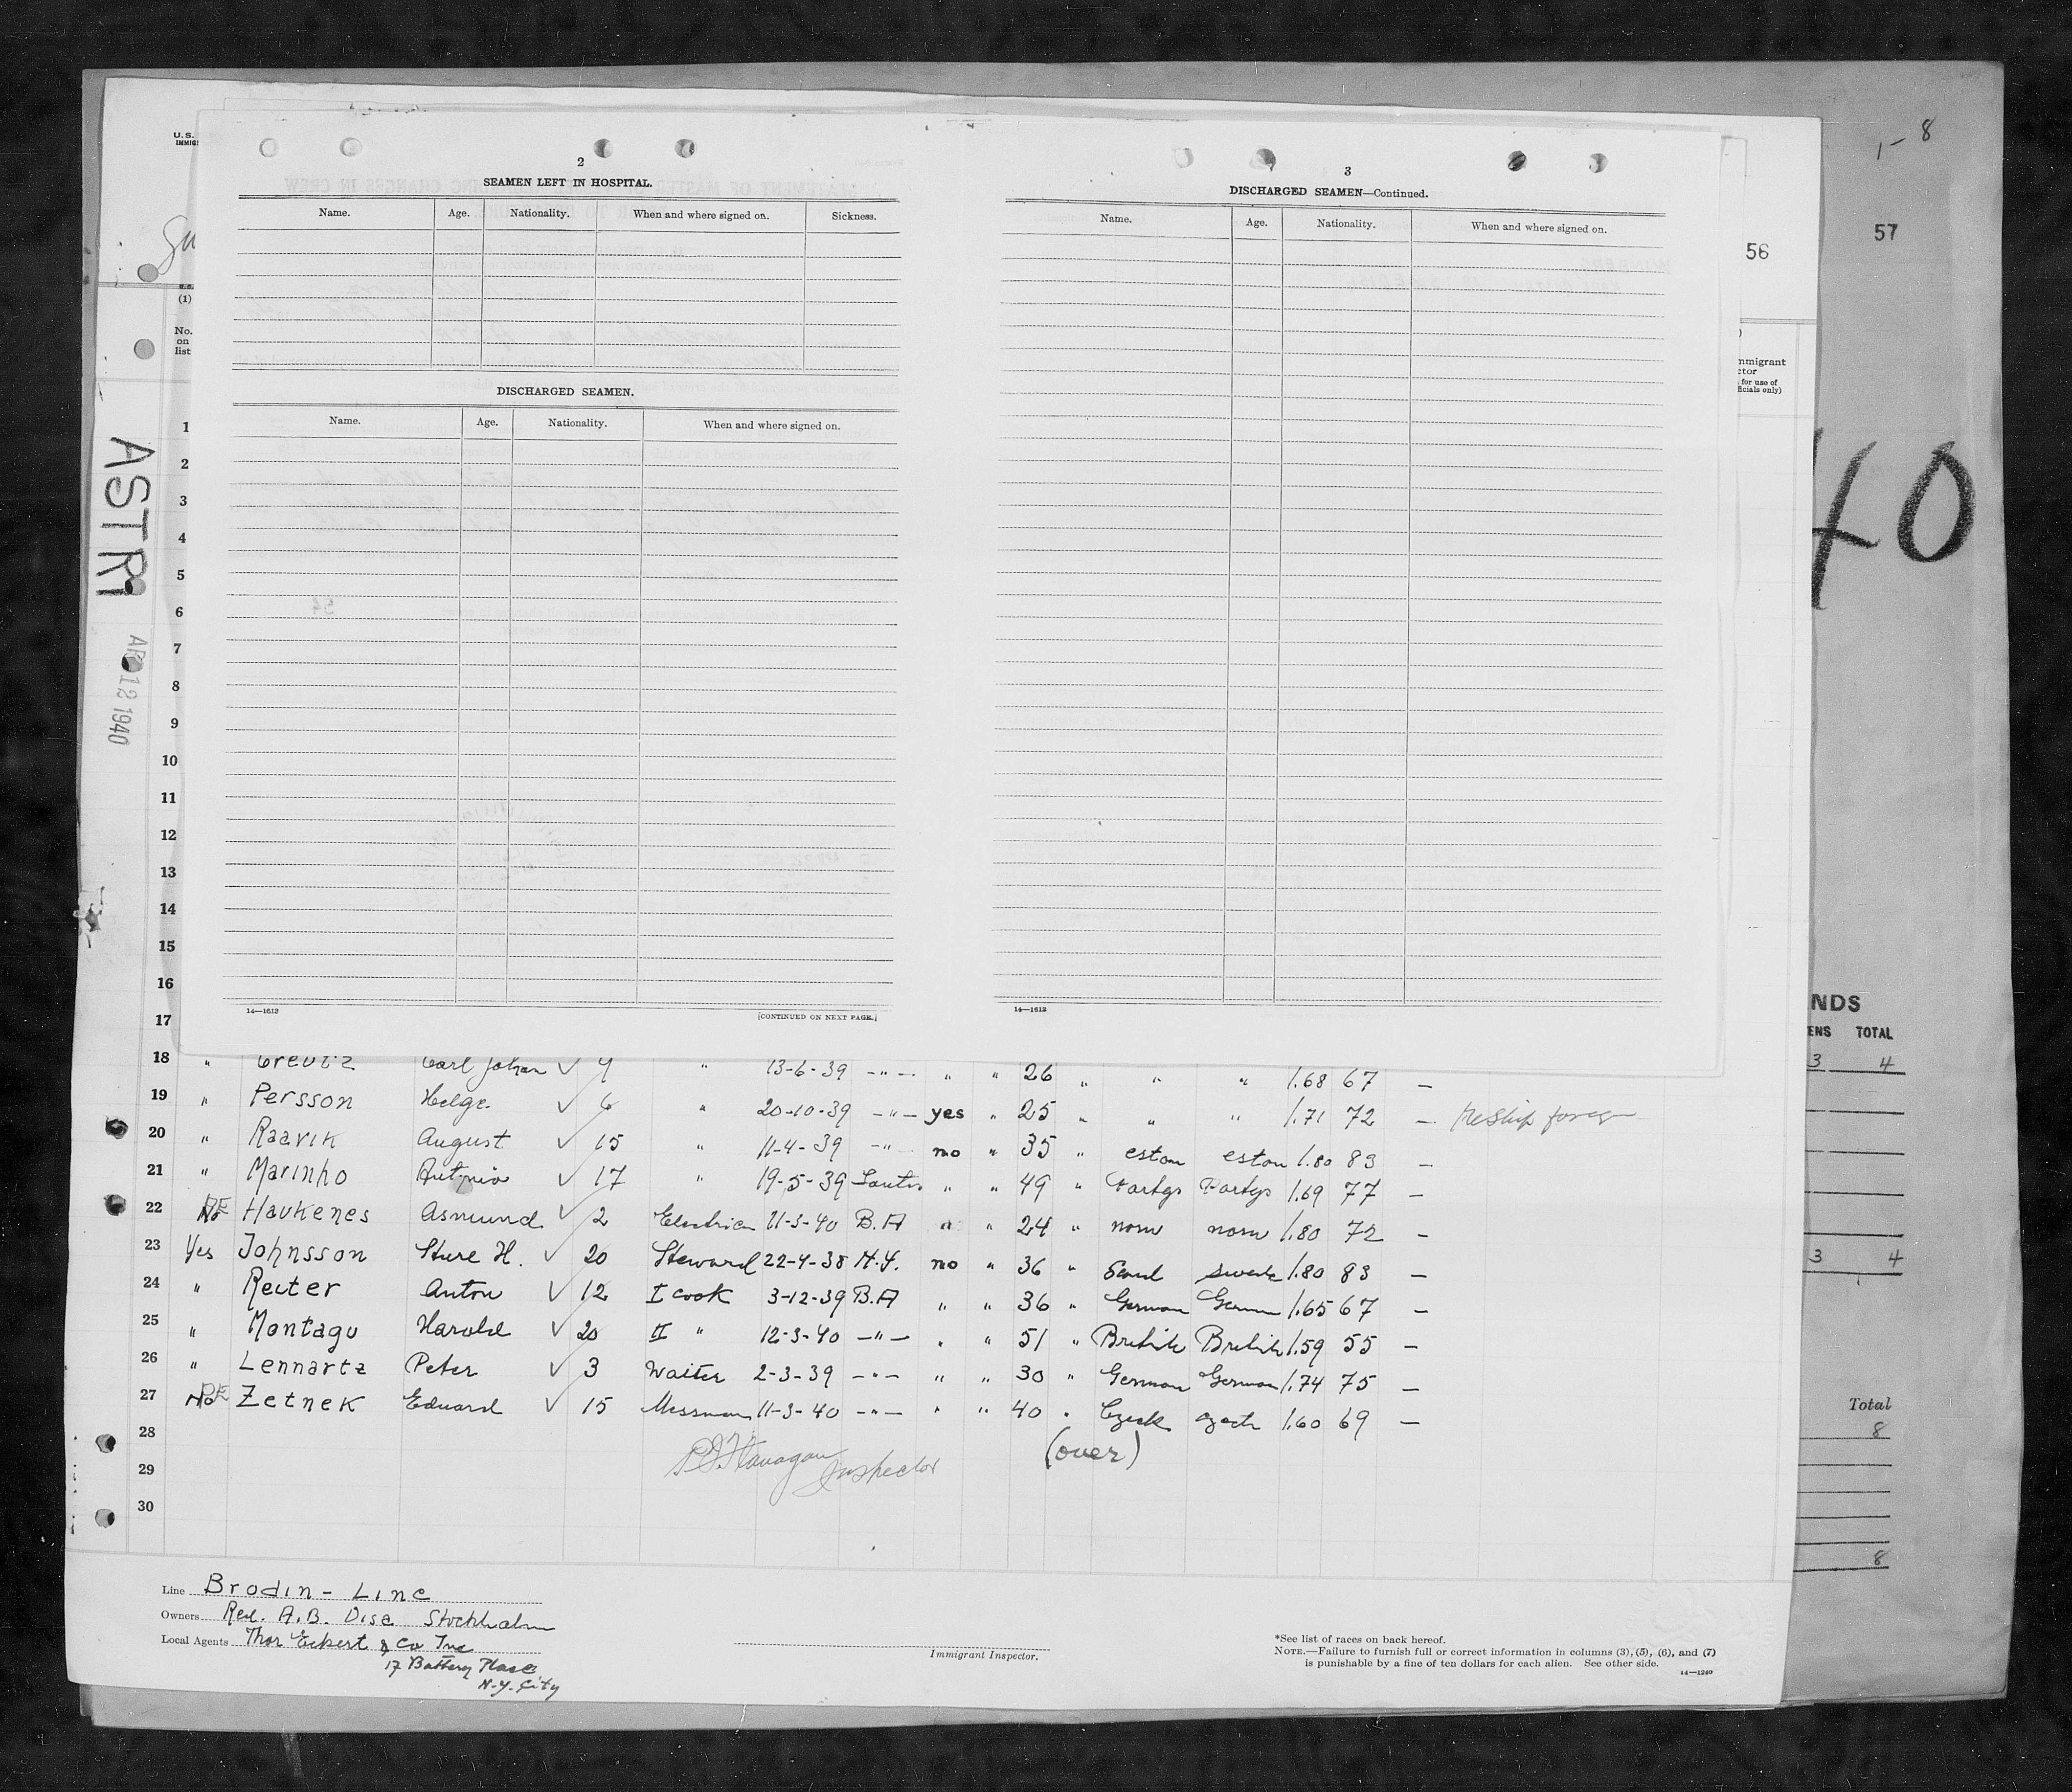 1-8
57
56
U.S.
(1)
No. on list
nmigrant
ctor
for use of
ficials only)
40
ASTRI
12 1940
2
SEAMEN LEFT IN HOSPITAL.
Name. Age. Nationality. When and where signed on. Sickness.
DISCHARGED SEAMEN.
Name. Age. Nationality. When and where signed on.
14—1613 [CONTINUED ON NEXT PAGE.]
3
DISCHARGED SEAMEN—Continued.
Name. Age. Nationality. When and where signed on.
14—1613
1
2
3
4
5
6
7
8
9
10
11
12
13
14
15
16
17
18 " Creutz Carl Johan ✓ 4 " 13-6-39 -"- " " 26 " " " 1.68 67 —
19 " Persson Helge ✓ 6 " 20-10-39 -"- yes " 25 " " " 1.71 72 — Reship foreign
20 " Raavik August ✓ 15 " 11-4-39 -"- no " 35 " eston eston 1.80 83 —
21 " Marinho Antonio ✓ 17 " 19-5-39 Santos " " 49 " Portgs Portgs 1.69 77 —
22 No Haukenes Asmund ✓ 2 Electrician 11-3-40 B.A " " 24 " norw norw 1.80 72 —
23 Yes Johnsson Sture H. ✓ 20 Steward 22-4-38 N.Y. no " 36 " Scand swede 1.80 83 —
24 " Reiter Anton ✓ 12 I cook 3-12-39 B.A " " 36 " German German 1.65 67 —
25 " Montagu Harold ✓ 20 II " 12-3-40 -"- " " 51 " British British 1.59 55 —
26 " Lennartz Peter ✓ 3 Waiter 2-3-39 -"- " " 30 " German German 1.74 75 —
27 No Zetnek Eduard ✓ 15 Messman 11-3-40 -"- " " 40 " Czech czech 1.60 69 —
28 (over)
29 Flanagan Inspector
30
Line Brodin-Line
Owners Red. A.B. Disa Stockholm
Local Agents Thor Eckert & Co Inc
17 Battery Place
N.Y. City
Immigrant Inspector.
*See list of races on back hereof.
NOTE.—Failure to furnish full or correct information in columns (3), (5), (6), and (7)
is punishable by a fine of ten dollars for each alien. See other side.
14—1240
NDS
ENS TOTAL
3 4
3 4
Total
8
8